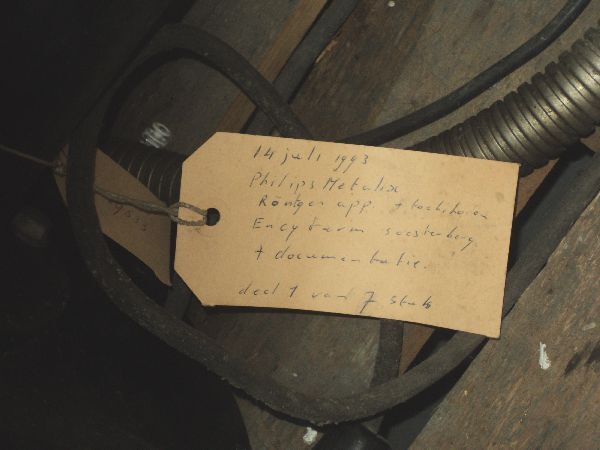 14 juli 1993
Philips Metalix
Röntgen app. + toebehoren
Encyfarm soesterberg.
+ documentatie.
deel 1 van 7 stuks